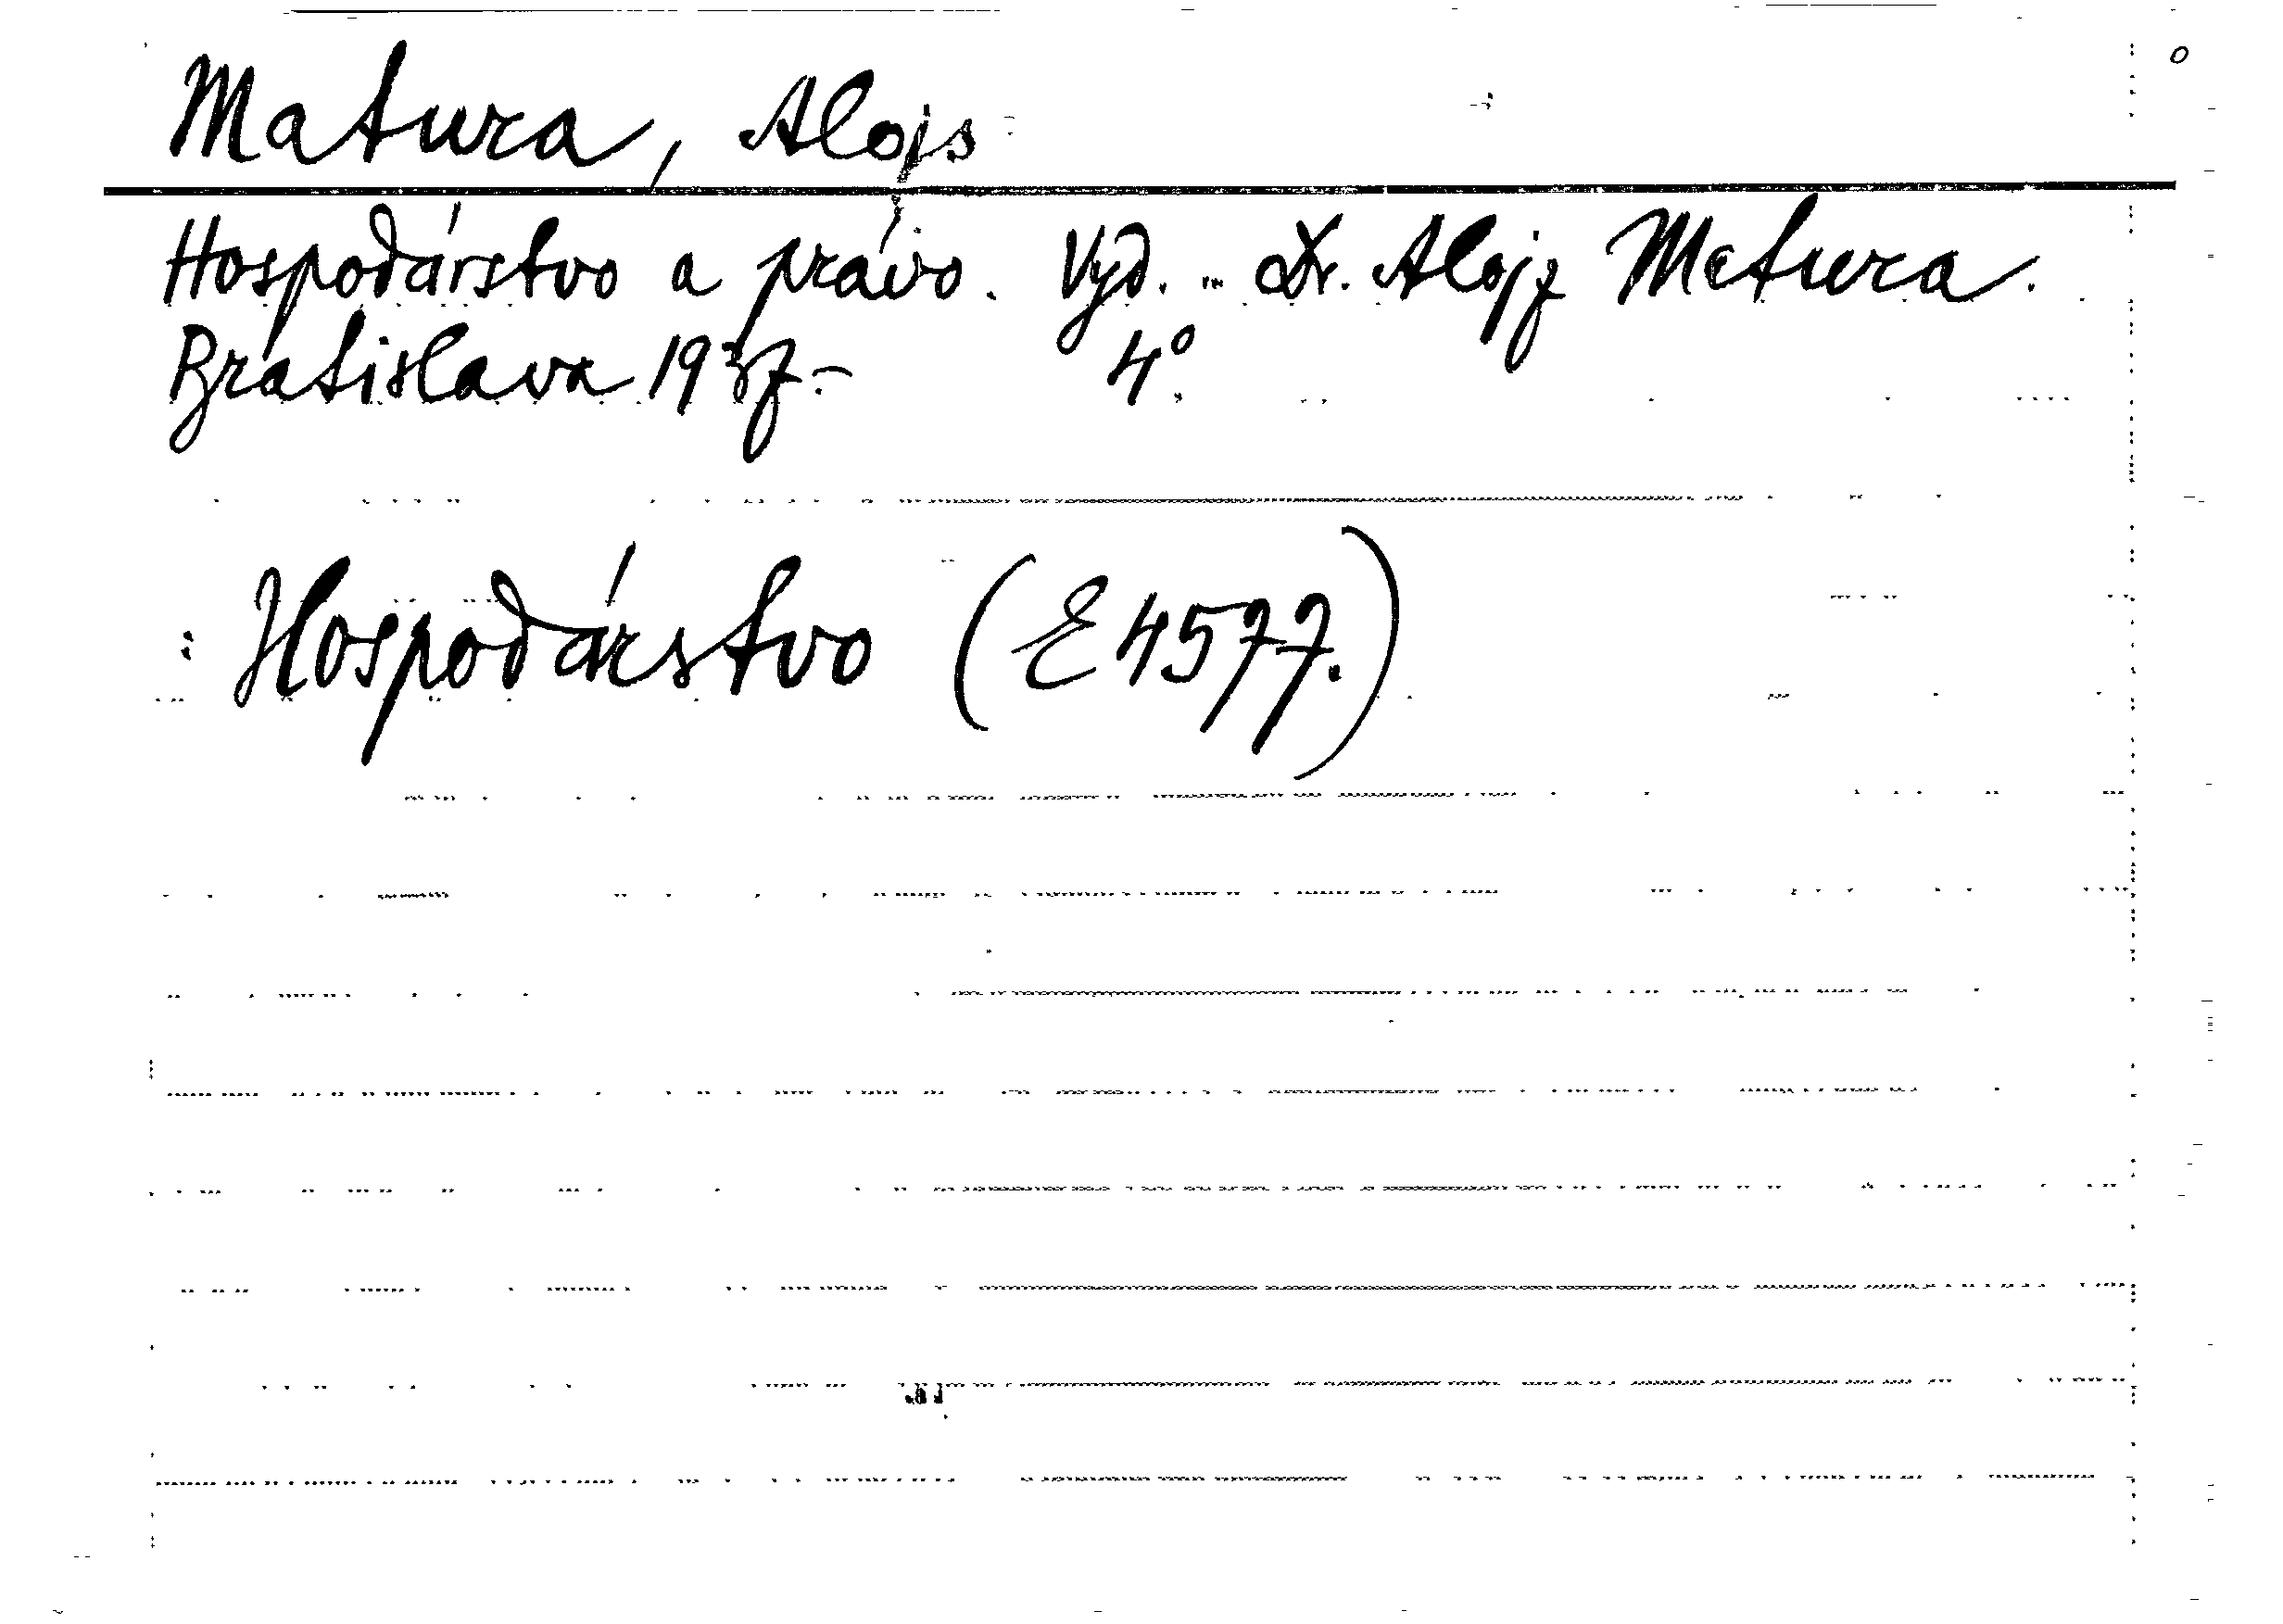 Matura, Alojs
Hospodárstvo a právo. Vyd. .. Dr. Alojz Matura.
Bratislava 1937.- 4°.
: Hospodárstvo (E 4577.)